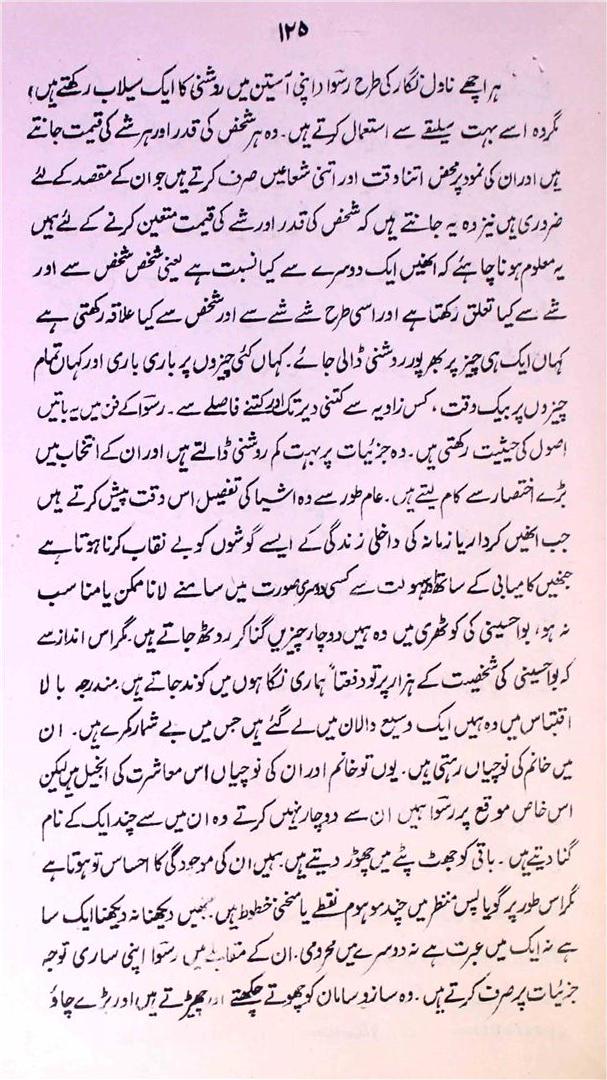 ۱۲۵
ہر اچھے ناول نگار کی طرح رسوا اپنی آستین میں روشنی کا ایک سیلاب رکھتے ہیں،
مگر وہ اسے بہت سلیقے سے استعمال کرتے ہیں۔ وہ ہر شخص کی قدر اور ہر شے کی قیمت جانتے
ہیں اور ان کی نمود پر محض اتنا وقت اور اتنی شعاعیں صرف کرتے ہیں جو ان کے مقصد کے لئے
ضروری ہیں نیز وہ یہ جانتے ہیں کہ شخص کی قدر اور شے کی قیمت متعین کرنے کے لئے ہمیں
یہ معلوم ہونا چاہئے کہ انھیں ایک دوسرے سے کیا نسبت ہے یعنی شخص شخص سے اور
شے سے کیا تعلق رکھتا ہے اور اسی طرح شے شے سے اور شخص سے کیا علاقہ رکھتی ہے
کہاں ایک ہی چیز پر بھرپور روشنی ڈالی جائے۔ کہاں کئی چیزوں پر باری باری اور کہاں تمام
چیزوں پر بیک وقت، کس زاویہ سے کتنی دیر تک اور کتنے فاصلے سے۔ رسوا کے فن میں یہ باتیں
اصول کی حیثیت رکھتی ہیں۔ وہ جزئیات پر بہت کم روشنی ڈالتے ہیں اور ان کے انتخاب میں
بڑے اختصار سے کام لیتے ہیں۔ عام طور سے وہ اشیا کی تفصیل اس وقت پیش کرتے ہیں
جب انھیں کردار یا زمانہ کی داخلی زندگی کے ایسے گوشوں کو بے نقاب کرنا ہوتا ہے
جنھیں کامیابی کے ساتھ اور سہولت سے کسی دوسری صورت میں سامنے لانا ممکن یا مناسب
نہ ہو، بوا حسینی کی کوٹھری میں وہ ہمیں دو چار چیزیں گنا کر روٹھ جاتے ہیں۔ مگر اس انداز سے
کہ بوا حسینی کی شخصیت کے ہزار پرتو دفعتاً ہماری نگاہوں میں کوند جاتے ہیں۔ مندرجہ بالا
اقتباس میں وہ ہمیں ایک وسیع دالان میں لے گئے ہیں جس میں بے شمار کمرے ہیں۔ ان
میں خانم کی نوچیاں رہتی ہیں۔ یوں تو خانم اور ان کی نوچیاں اس معاشرت کی انجیل ہیں لیکن
اس خاص موقع پر رسوا ہمیں ان سے دوچار نہیں کرتے وہ ان میں سے چند ایک کے نام
گنا دیتے ہیں۔ باقی کو جھٹ پٹے میں چھوڑ دیتے ہیں۔ ہمیں ان کی موجودگی کا احساس تو ہوتا ہے
مگر اس طور پر گویا پس منظر میں چند موہوم نقطے یا منحنی خطوط ہیں۔ جنھیں دیکھنا نہ دیکھنا ایک سا
ہے نہ ایک میں عبرت ہے نہ دوسرے میں محرومی۔ ان کے مقابلے میں رسوا اپنی ساری توجہ
جزئیات پر صرف کرتے ہیں۔ وہ ساز و سامان کو چھوتے چکھتے اور چھیڑتے ہیں اور بڑے چاؤ